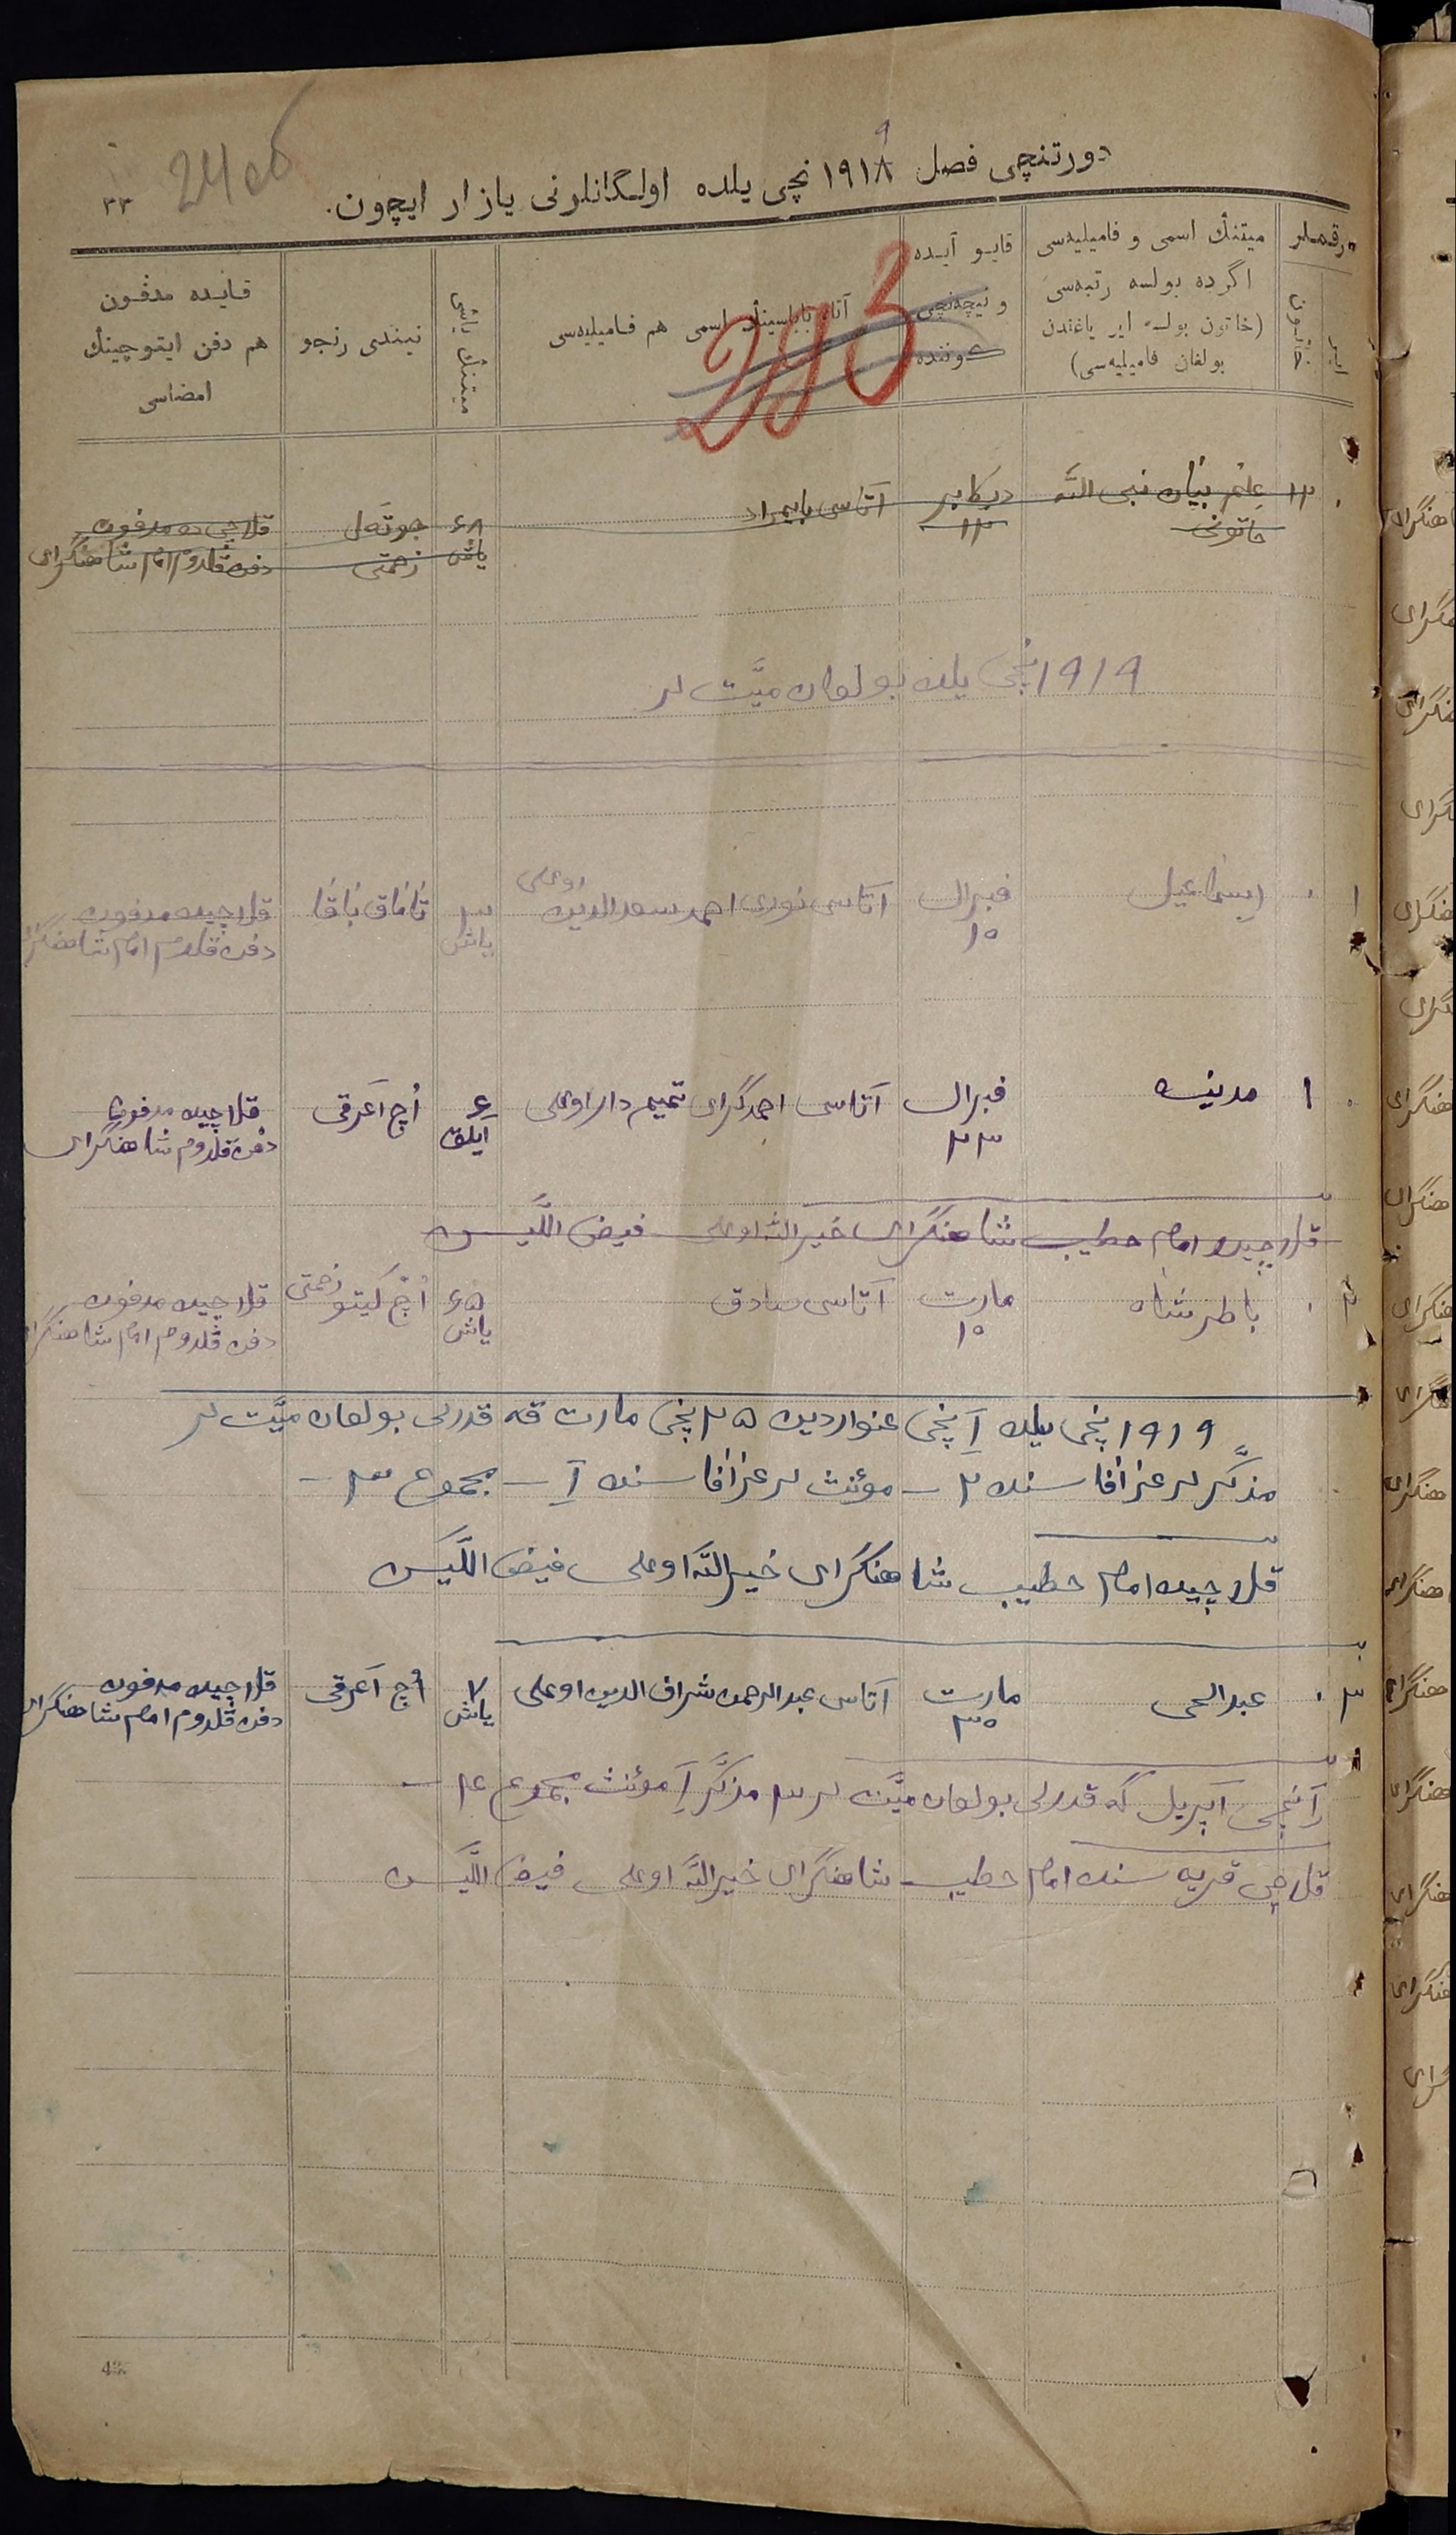 24 об
٣٣
دورتنچی فصل ١٩١٨ نچی یلده اولگانلرنی یازار ایچون.
٩
رقملر
ایر
خاتون
میتنڭ اسمی و فامیلیه‌سی
اگرده بولسه رتبه‌سی
(خاتون بولسه ایر یاغندن
بولغان فامیلیه‌سی)
قایو آیده
و نیچه‌نچی
کوننده
آتا باباسینڭ اسمی هم فامیلیه‌سی
293
میتنڭ یاشی
نیندی رنجو
قایده مدفون
هم دفن ایتوچینڭ
امضاسی
١٢ بیان نبی الله خاتونی
دیکابر ١٢
آتاسی بایمراد
٦٨ یاش
جوتەل زحمتی
قلاچی ده مدفون
دفن قلدوم امام شاهنگرای
١٩١٩ نچی یلده بولغان میّت لر
١ اسماعیل
فبرال ١٥
آتاسی نوری احمد سعدالدین اوغلی
٣ یاش
تاماق باقا
قلاچیده مدفون
دفن قلدم امام شاهنگرای
١ مدینه
فبرال ٢٣
آتاسی احمدگرای تمیم دار اوغلی
٤ آیلق
اُچ آغرقی
قلاچیده مدفون
دفن قلدوم شاهنگرای
قلاچیده امام خطیب شاهنگرای خیرالله اوغلی فیض اللّین
٢ باطرشاه
مارت ١٥
آتاسی صادق
٦٥ یاش
اُچ کیتو زحمتی
قلاچیده مدفون
دفن قلدوم امام شاهنگرای
١٩١٩ نچی یلده ١ نچی غنواردین ٢٥ نچی مارت قه قدرلی بولغان میّت لر
مذکّر لر غرافاسنده ٢ – مؤنث لر غرافاسنده ١ – مجموع ٣ –
قلاچیده امام خطیب شاهنگرای خیرالله اوغلی فیض اللّین
٣ عبدالحی
مارت ٣٠
آتاسی عبدالرحمن شراف الدین اوغلی
٧ یاش
اُچ آغرقی
قلاچیده مدفون
دفن قلدوم امام شاهنگرای
١ نچی آپریل گه قدرلی بولغان میّت لر ٣ مذکّر ١ مؤنث مجموع ٤ –
قلاچی قریه سنده امام خطیب شاهنگرای خیرالله اوغلی فیض اللّین